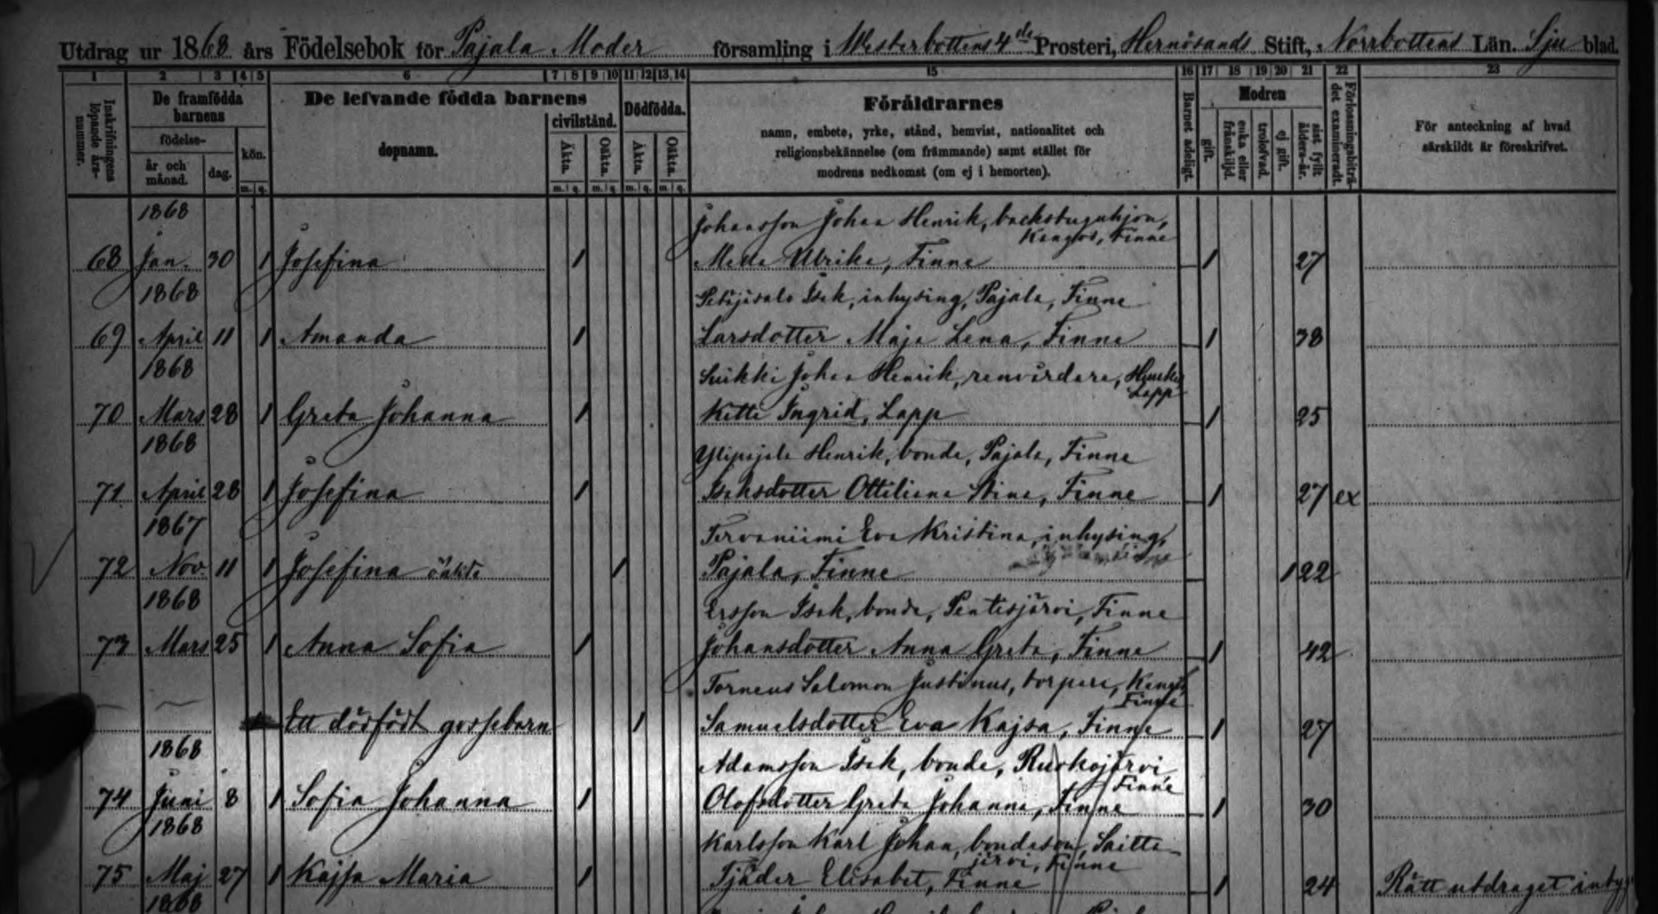 Utdrag ur 1868 års Födelsebok för Pajala Moder församling i Westerbottens 4de Prosteri, Hernösands Stift, Norrbottens Län. Sju blad.
1 2 3 4 5 6 7 8 9 10 11 12 13 14 15 16 17 18 19 20 21 22 23
Inskrifningens löpande års-nummer.
De framfödda barnens
födelse-
år och månad.
dag.
kön.
m. q.
De lefvande födda barnens
dopnamn.
civilstånd.
Äkta.
Oäkta.
m. q. m. q.
Dödfödda.
Äkta.
Oäkta.
m. q. m. q.
Föräldrarnes
namn, embete, yrke, stånd, hemvist, nationalitet och
religionsbekännelse (om främmande) samt stället för
modrens nedkomst (om ej i hemorten).
Barnet adeligt.
Modren
gift.
enka eller frånskiljd.
trolofvad.
ej gift.
sist fyllt ålders-år.
Förlossningsbiträdet examineradt.
För anteckning af hvad
särskildt är föreskrifvet.
1868
Johansson Johan Henrik, backstuguhjon,
Kangos, Finne
68 Jan. 30 1 Josefina 1 Ulrika, Finne 1 27
1868
Isak, inhysing, Pajala, Finne
69 April 11 1 Amanda 1 Larsdotter Maja Lena, Finne 1 38
1868
Johan Henrik, renvårdare,
Lapp
70 Mars 28 1 Greta Johanna 1 Kitti Ingrid, Lapp 1 25
1868
Ylipajala Henrik, bonde, Pajala, Finne
71 April 28 1 Josefina 1 Isaksdotter Ottiliana Stina, Finne 1 27 ex
1867
Tervaniimi Eva Kristina, inhysing,
72 Nov 11 1 Josefina oäkta 1 Pajala, Finne 1 22
1868
Ersson Isak, bonde, Pentisjärvi, Finne
73 Mars 25 1 Anna Sofia 1 Johansdotter Anna Greta, Finne 1 42
Torneus Salomon Justinus, torpare,
Finne
Ett dödfödt gossebarn 1 Samuelsdotter Eva Kajsa, Finne 1 27
1868
Adamsson Isak, bonde, Ruokojärvi,
Finne
74 Juni 8 1 Sofia Johanna 1 Olofsdotter Greta Johanna, Finne 1 30
1868
Karlsson Karl Johan, bondeson, Saitta-
järvi, Finne
75 Maj 27 1 Kajsa Maria 1 Tjäder Elisabet, Finne 1 24 Rätt utdraget intygar
1868